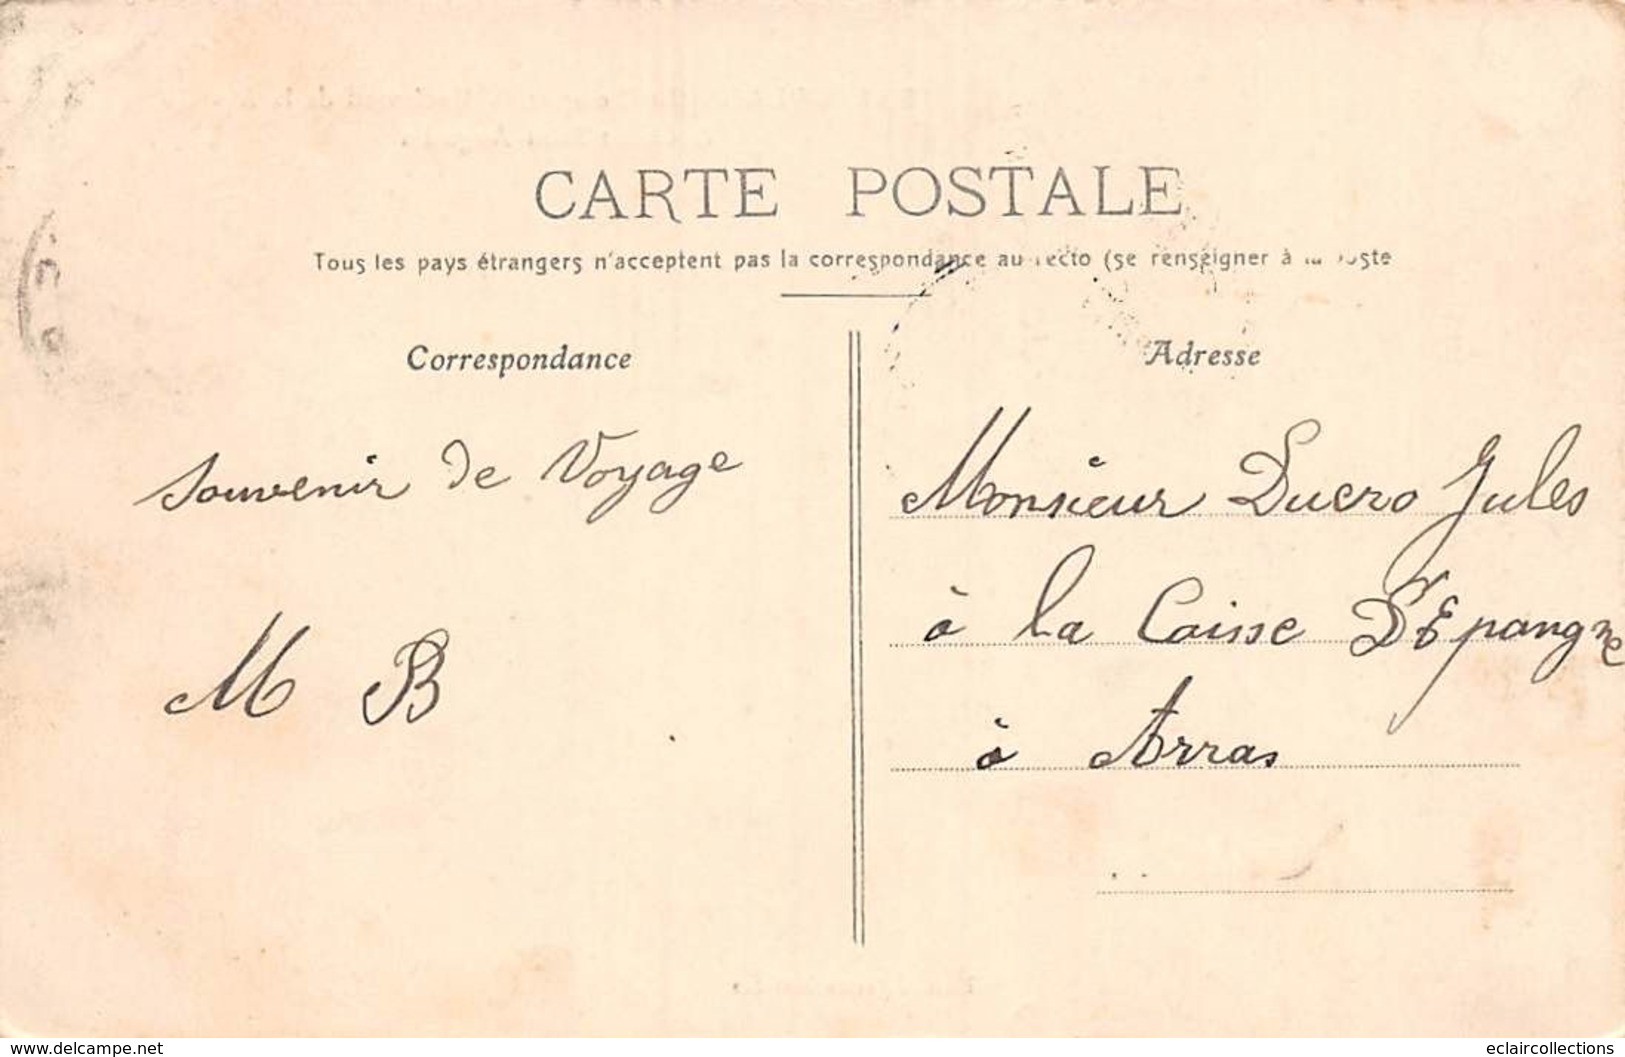 CARTE POSTALE
Tous les pays étrangers n'acceptent pas la correspondance au recto (se renseigner à la poste
Correspondance
Adresse
Souvenir de Voyage
M B
Monsieur Ducro Jules
à la Caisse D'Epangne
à Arras
www.delcampe.net
eclaircollections